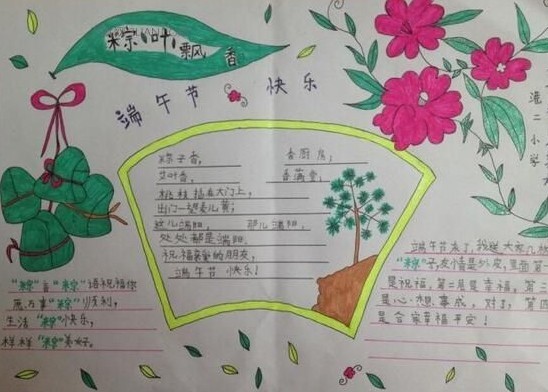 粽叶飘香
端午节快乐
港二小学
粽子香，香厨房，
艾叶香，香满堂，
桃枝插在大门上，
出门一望麦儿黄，
这儿端阳，那儿端阳，
处处都是端阳。
祝福亲爱的朋友，
端午节快乐！
"粽"言"粽"语祝福您
愿万事"粽"顺利，
生活"粽"快乐，
样样"粽"美好。
端午节来了，我送大家几
"粽"子，友情是外皮，里面第一
是祝福，第二层是幸福，第三
是心想事成，对了，第四
是合家幸福平安！